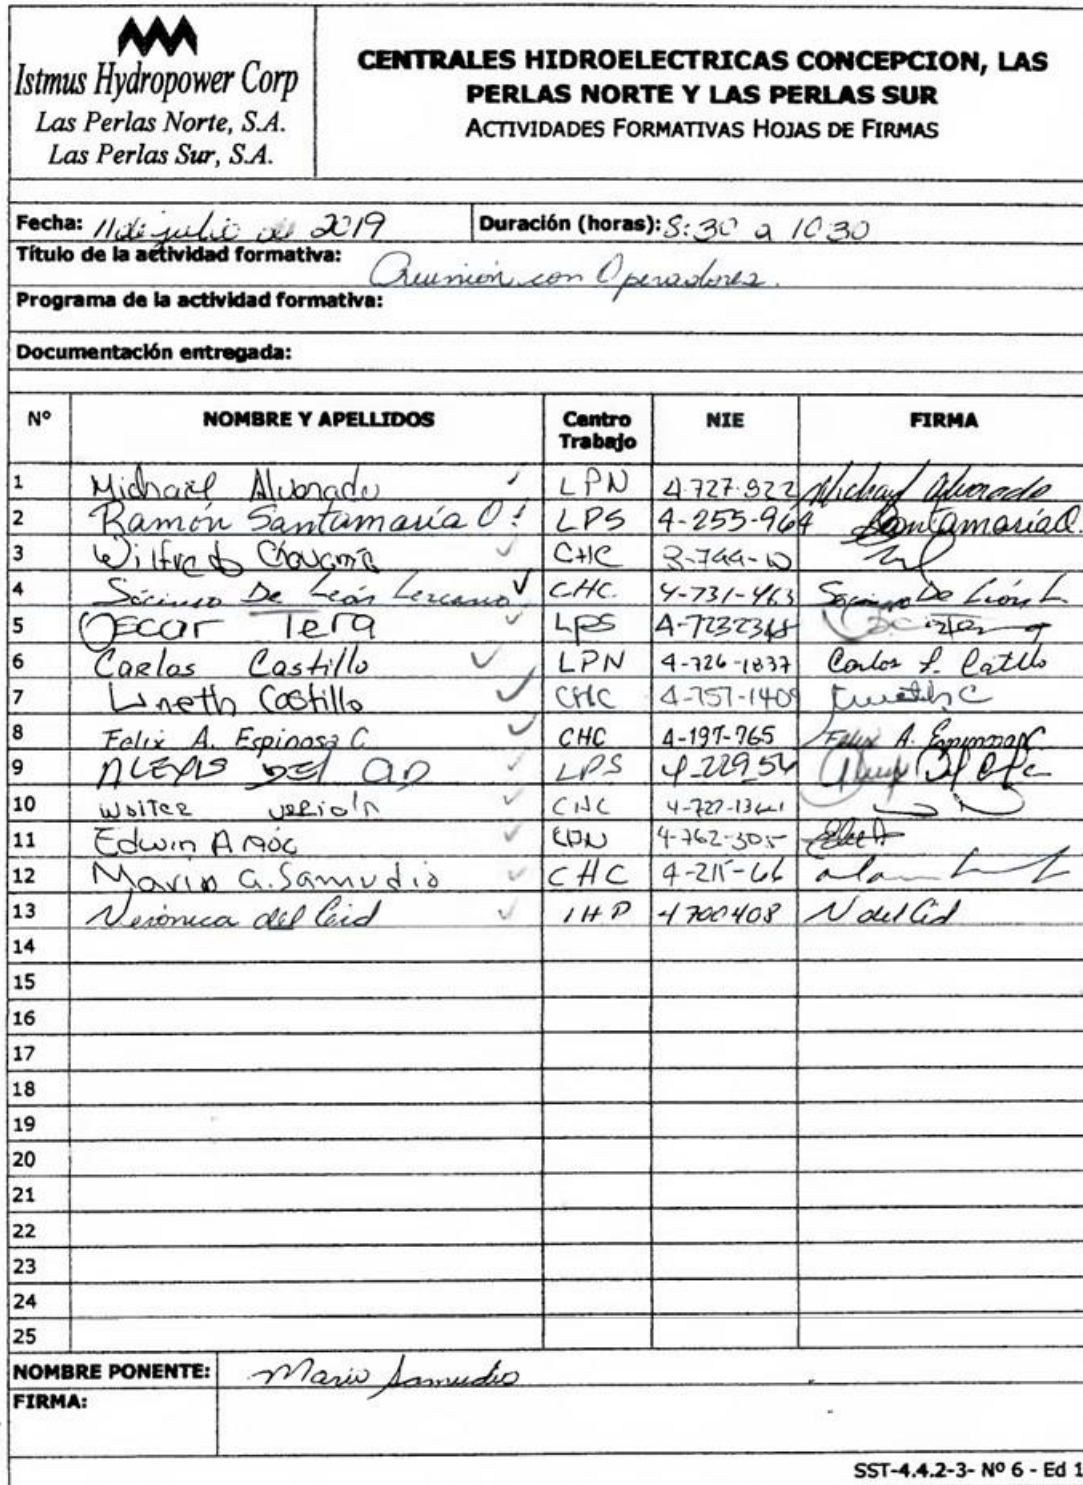 Istmus Hydropower Corp
Las Perlas Norte, S.A.
Las Perlas Sur, S.A.
CENTRALES HIDROELECTRICAS CONCEPCION, LAS
PERLAS NORTE Y LAS PERLAS SUR
ACTIVIDADES FORMATIVAS HOJAS DE FIRMAS
Fecha: 11 de julio de 2019 Duración (horas): 8:30 a 10 30
Título de la actividad formativa: Reunión con Operadores.
Programa de la actividad formativa:
Documentación entregada:
Nº NOMBRE Y APELLIDOS Centro Trabajo NIE FIRMA
1 Michael Alvarado LPN 4-727-922 Michael Alvarado
2 Ramón Santamaría O. LPS 4-255-964 Santamaría O.
3 Wilfredo CHC
4 De León Lezcano CHC 4-731-463 De León L.
5 Oscar Tera LPS 4-7232368
6 Carlos Castillo LPN 4-726-1837 Carlos Catllo
7 Lineth Castillo CHC 4-757-1409
8 Felix A. Espinosa C CHC 4-197-765 Felix A. Espinosa C
9 ALEXIS DEL CID LPS 4-22954
10 Walter CHC
11 Edwin LPN 4-762-305
12 Mario G. Samudio CHC 4-215-66
13 Verónica del Cid IHP 4700408 N del Cid
14
15
16
17
18
19
20
21
22
23
24
25
NOMBRE PONENTE: Mario Samudio
FIRMA:
SST-4.4.2-3- Nº 6 - Ed 1